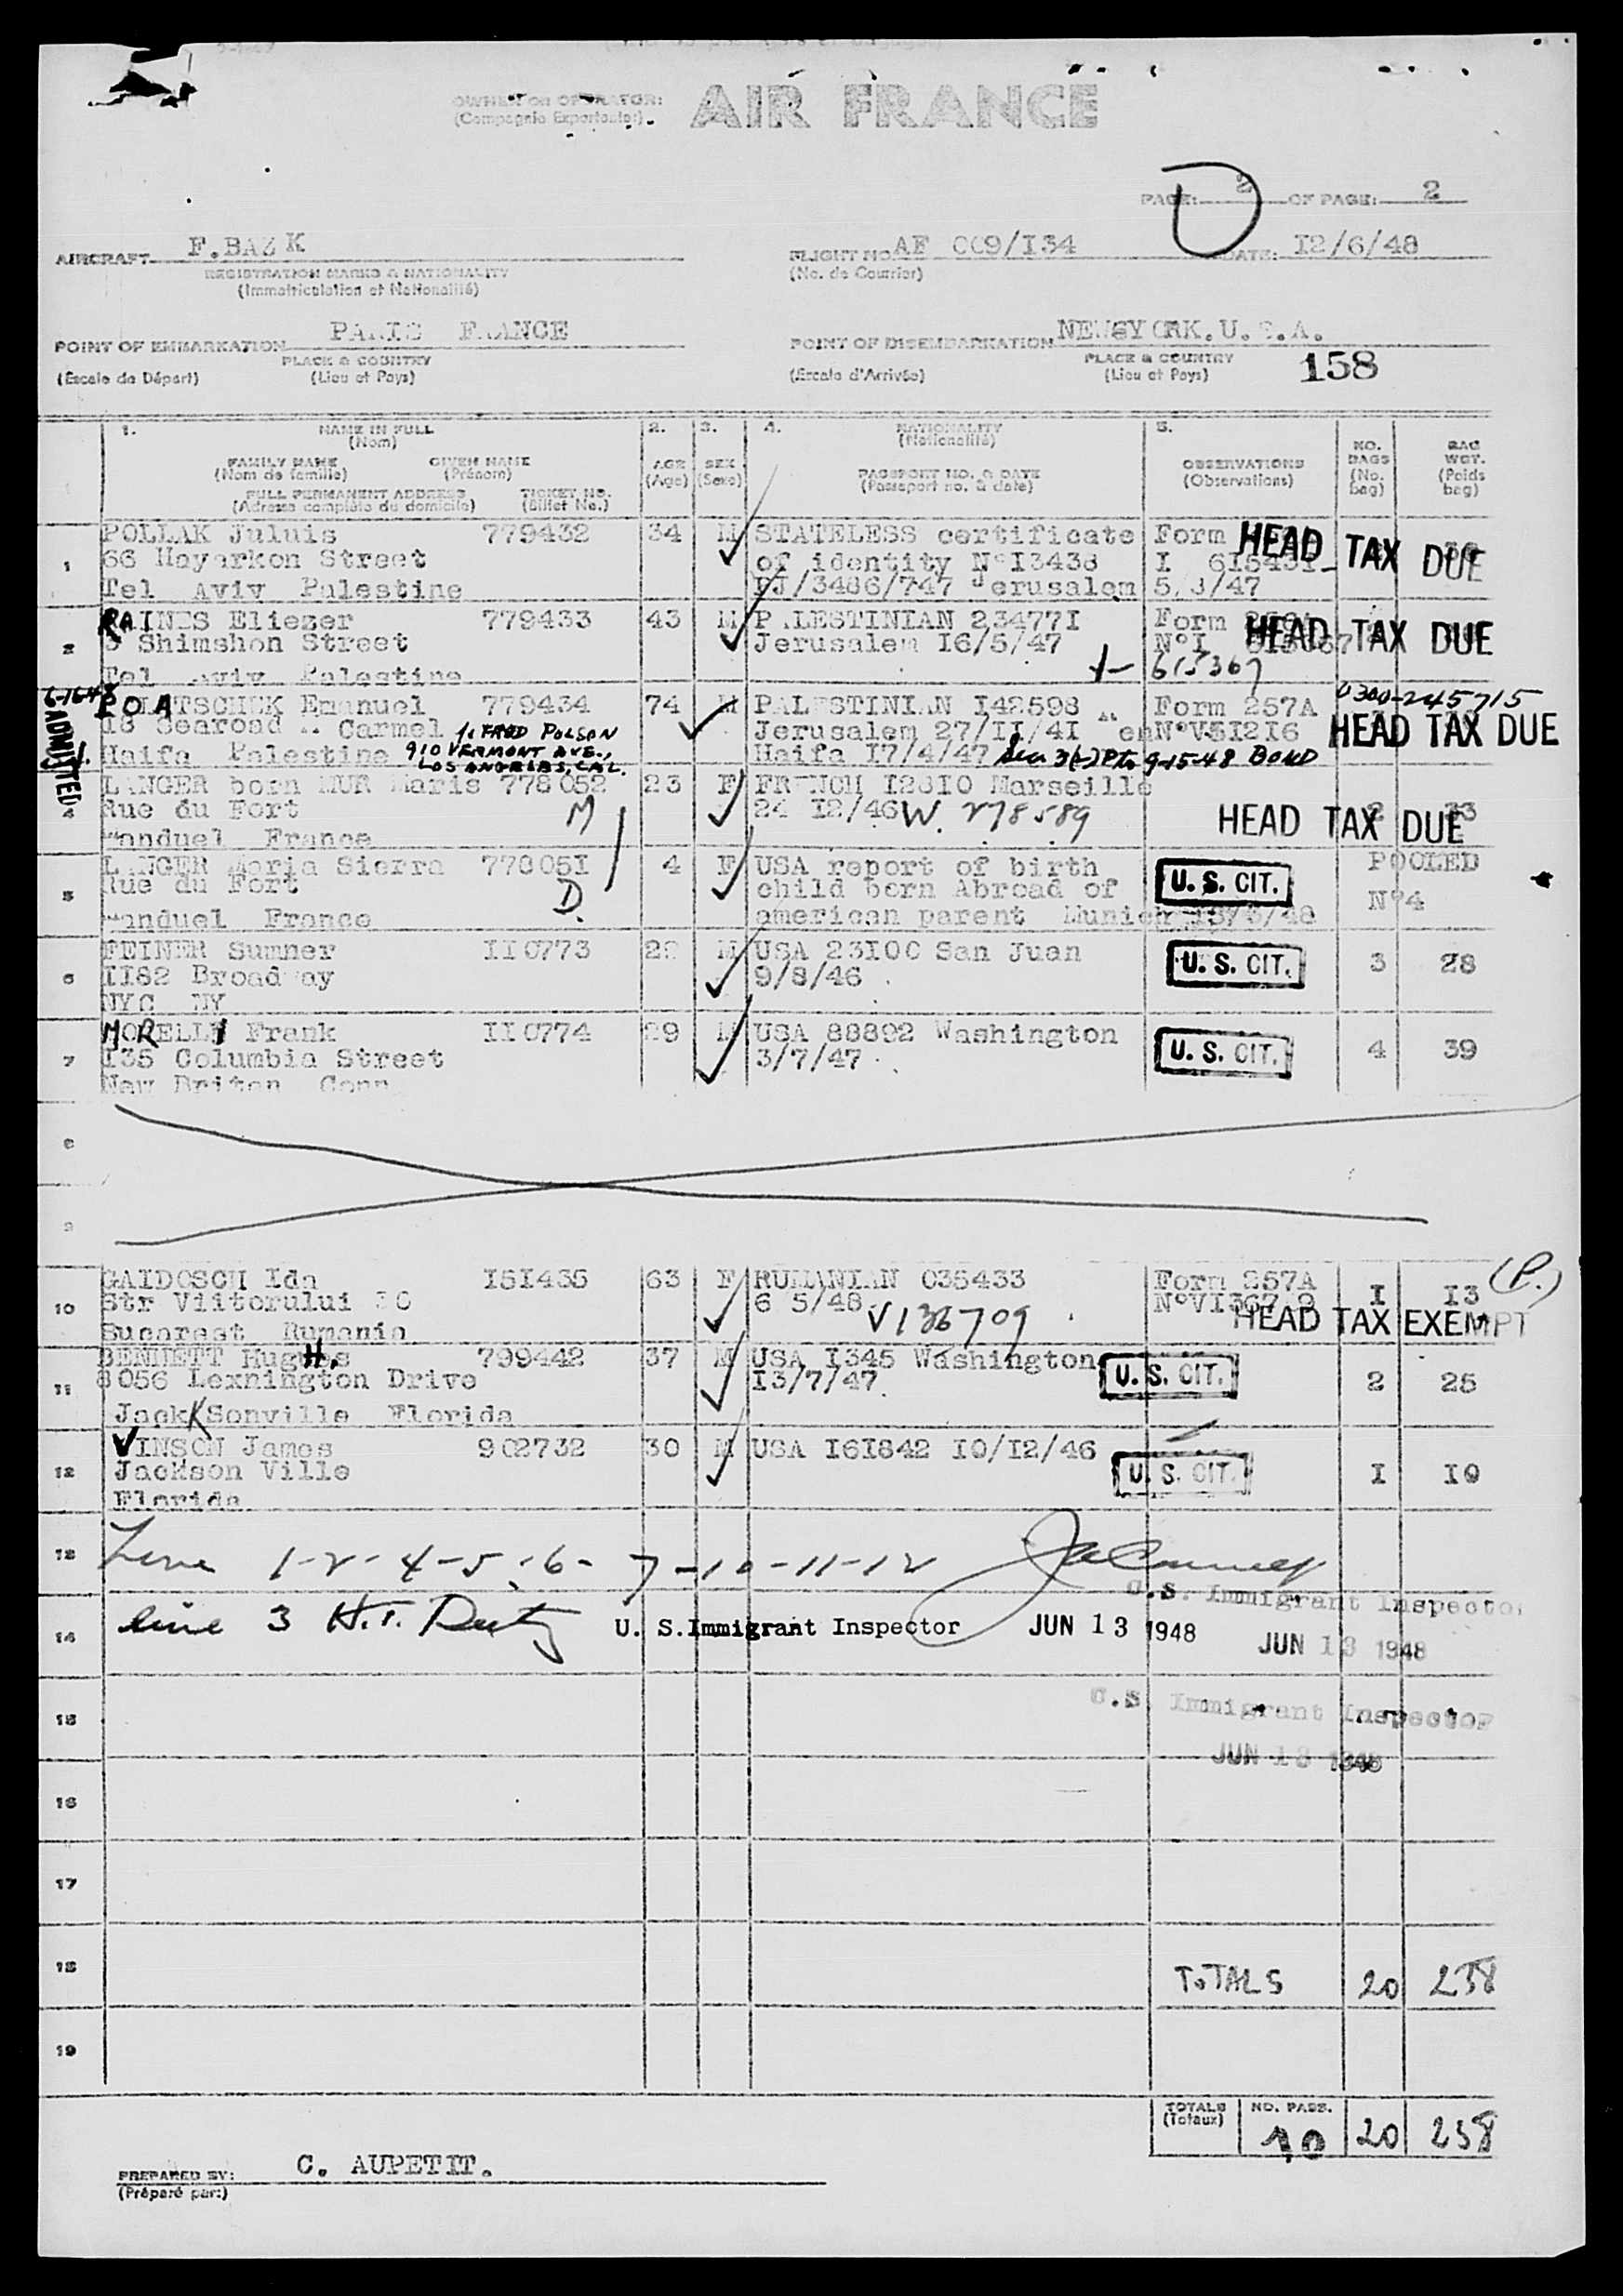 OWNER OR OPERATOR:
(Compagnie Exportautor)
AIR FRANCE
PAGE: 2 OF PAGE: 2
D
AIRCRAFT F.BAZK
REGISTRATION MARKS & NATIONALITY
(Immatriculation et Nationalité)
FLIGHT NO. AF 009/I34 DATE: I2/6/48
(No. de Courrier)
POINT OF EMBARKATION PARIS FRANCE
PLACE & COUNTRY
(Escale de Départ) (Lieu et Pays)
POINT OF DISEMBARKATION NEWSYORK.U.S.A.
PLACE & COUNTRY
(Escale d'Arrivée) (Lieu et Pays)
158
1. NAME IN FULL
(Nom)
FAMILY NAME GIVEN NAME
(Nom de famille) (Prénom)
FULL PERMANENT ADDRESS TICKET NO.
(Adresse complète du domicile) (Billet No.)
2. AGE
(Age)
3. SEX
(Sexe)
4. NATIONALITY
(Nationalité)
PASSPORT NO. & DATE
(Passeport no. & date)
5. OBSERVATIONS
(Observations)
NO. BAGS
(No. bag)
BAG WGT.
(Poids bag)
1 POLLAK Juluis 779432 34 M STATELESS certificate Form
66 Hayarkon Street of identity N°I3438 I 615431-
Tel Aviv Palestine PJ/3486/747 Jerusalem 5/8/47
HEAD TAX DUE
2 RAINES Eliezer 779433 43 M PALESTINIAN 23477I Form 257A
Shimshon Street Jerusalem I6/5/47 N°I
Tel Aviv Palestine 615367
HEAD TAX DUE
6-16-48
ADMITTED.
3 POLATSCHEK Emanuel 779434 74 M PALESTINIAN I42598 Form 257A
0300-245715
18 Searoad M. Carmel Jerusalem 27/II/4I en N°V5I2I6
Haifa Palestine Haifa I7/4/47
% FRED POLSON
910 VERMONT AVE.,
LOS ANGELES, CAL.
Sec 3(2) P to 9-15-48 BOND
HEAD TAX DUE
4 LANGER born MUR Maris 778052 23 F FRENCH I28I0 Marseille
Rue du Fort M 24 I2/46 W. 278589 2 33
Manduel France
HEAD TAX DUE
5 LANGER Maria Sierra 77805I 4 F USA report of birth POOLED
Rue du Fort D. child born Abroad of N°4
Manduel France american parent Munich
U. S. CIT.
6 FEINER Sumner II0773 M USA 23I00 San Juan 3 28
II82 Broadway 9/8/46
NYC NY
U. S. CIT.
7 MORELLI Frank II0774 29 M USA 88892 Washington 4 39
I35 Columbia Street 3/7/47
New Briten Conn
U. S. CIT.
8
9
10 GAIDOSCH Ida I5I435 63 F RUMANIAN 035433 Form 257A I I3 (P.)
Str Viitorului 30 6 5/48 N°VI36709
Bucarest Rumania V136709
HEAD TAX EXEMPT
11 BENNETT Hugh H. 799442 37 M USA I345 Washington 2 25
8056 Lexnington Drive I3/7/47
JackKSonville Florida
U. S. CIT.
12 VINSON James 902732 30 M USA I6I842 I0/I2/46 I I0
Jackson Ville
Florida
U. S. CIT.
13 Line 1-2-4-5-6-7-10-11-12
U.S. Immigrant Inspector
14 line 3 H.T. Duty U. S. Immigrant Inspector JUN 13 1948
JUN 13 1948
15
U.S. Immigrant Inspector
JUN 13 1948
16
17
18 TOTALS 20 238
19
TOTALS
(Totaux)
NO. PASS.
10 20 238
PREPARED BY: C. AUPETIT.
(Préparé par:)